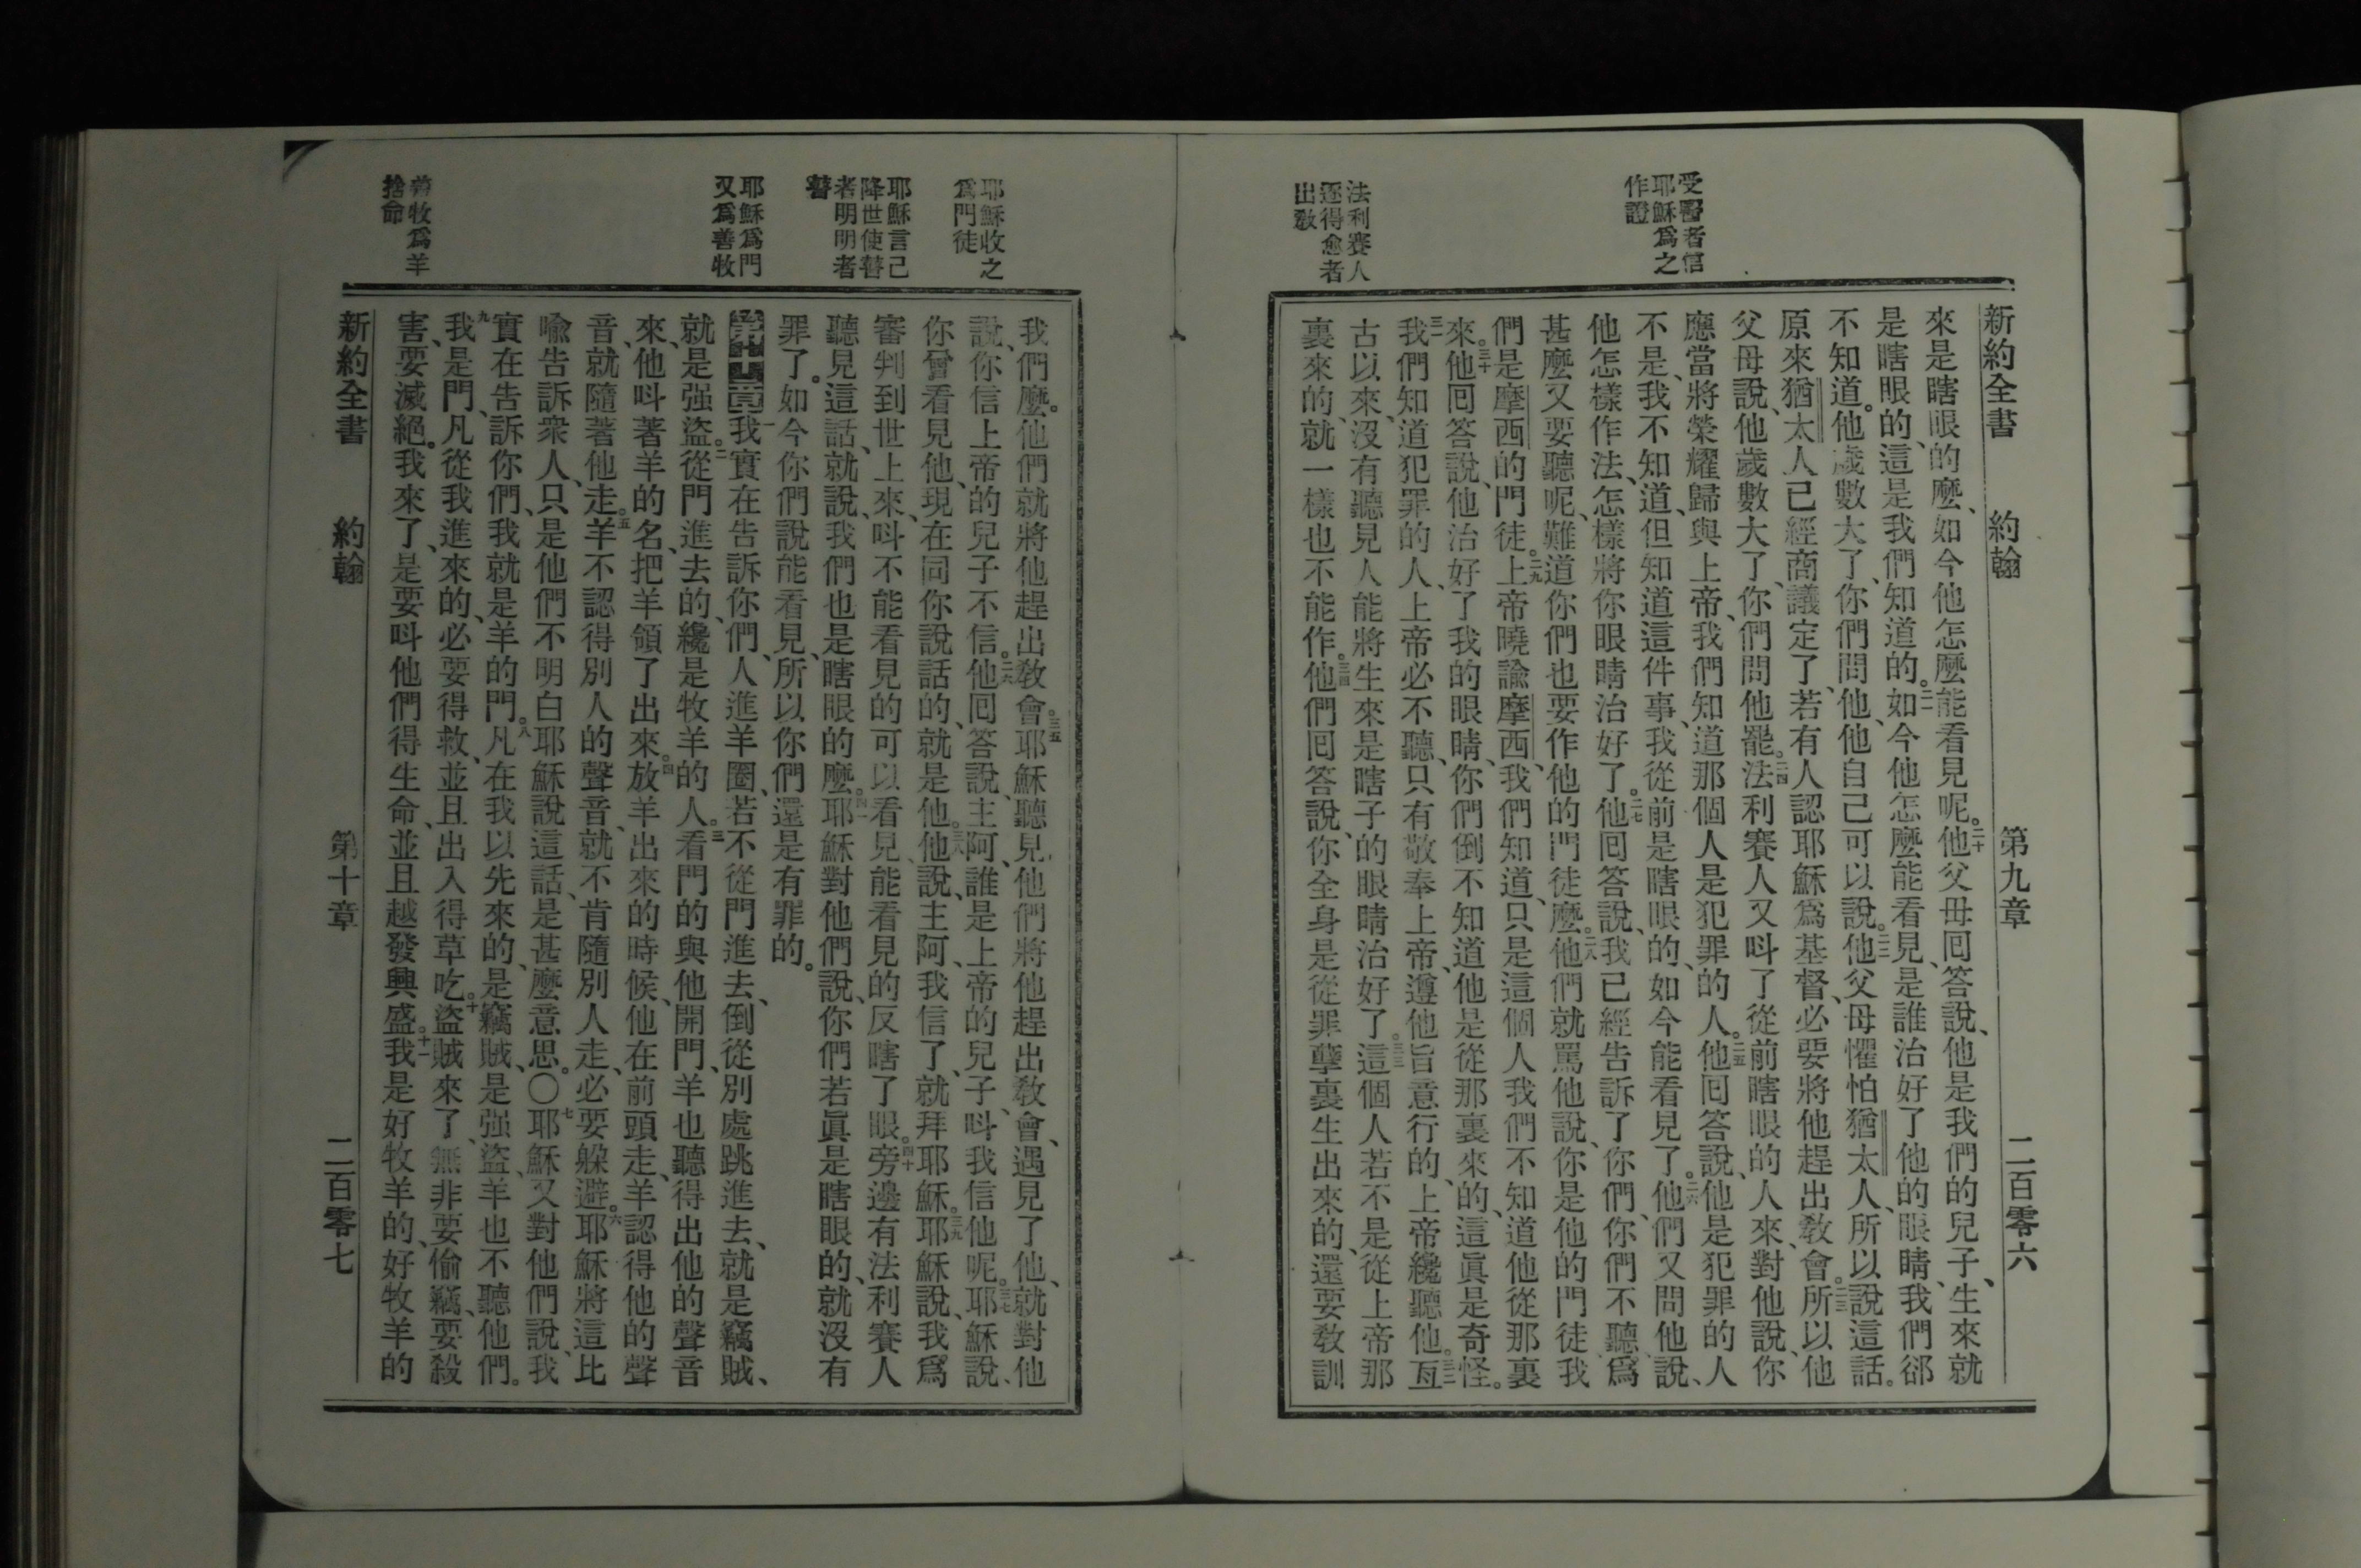 新約全書　約翰　第九章　二百零六
受醫者信
耶穌爲之
作證
法利賽人
逐得愈者
出敎
來是瞎眼的麼、如今他怎麼能看見呢。二十他父母囘答說、他是我們的兒子、生來就
是瞎眼的、這是我們知道的。二一如今他怎麼能看見、是誰治好了他的眼睛、我們卻
不知道。他歲數大了、你們問他、他自己可以說。二二他父母懼怕猶太人、所以說這話。
原來猶太人已經商議定了、若有人認耶穌爲基督、必要將他趕出敎會。二三所以他
父母說、他歲數大了、你們問他罷。二四法利賽人又呌了從前瞎眼的人來、對他說、你
應當將榮耀歸與上帝、我們知道那個人是犯罪的人。二五他囘答說、他是犯罪的人
不是、我不知道、但知道這件事、我從前是瞎眼的、如今能看見了。二六他們又問他說、
他怎樣作法、怎樣將你眼睛治好了。二七他囘答說、我已經告訴了你們、你們不聽、爲
甚麼又要聽呢、難道你們也要作他的門徒麼。二八他們就罵他說、你是他的門徒我
們是摩西的門徒。二九上帝曉諭摩西、我們知道、只是這個人我們不知道他從那裏
來。三十他囘答說、他治好了我的眼睛、你們倒不知道他是從那裏來的、這眞是奇怪。
三一我們知道犯罪的人、上帝必不聽、只有敬奉上帝、遵他旨意行的、上帝纔聽他。三二亙
古以來、沒有聽見人能將生來是瞎子的眼睛治好了。三三這個人若不是從上帝那
裏來的、就一樣也不能作。三四他們囘答說、你全身是從罪孽裏生出來的、還要敎訓
耶穌收之
爲門徒
耶穌言己
降世使瞽
者明明者
瞽
耶穌爲門
又爲善牧
善牧爲羊
捨命
我們麼。他們就將他趕出敎會。三五耶穌聽見他們將他趕出敎會、遇見了他、就對他
說、你信上帝的兒子不信。三六他囘答說、主阿、誰是上帝的兒子、呌我信他呢。三七耶穌說、
你曾看見他、現在同你說話的、就是他。三八他說、主阿、我信了、就拜耶穌。三九耶穌說、我爲
審判到世上來、呌不能看見的可以看見、能看見的反瞎了眼。四十旁邊有法利賽人
聽見這話、就說、我們也是瞎眼的麼。四一耶穌對他們說、你們若眞是瞎眼的、就沒有
罪了。如今你們說能看見、所以你們還是有罪的。
第十章一我實在告訴你們、人進羊圈、若不從門進去、倒從別處跳進去、就是竊賊、
就是强盜。二從門進去的、纔是牧羊的人。三看門的與他開門、羊也聽得出他的聲音
來、他呌著羊的名、把羊領了出來。四放羊出來的時候、他在前頭走、羊認得他的聲
音、就隨著他走。五羊不認得別人的聲音、就不肯隨別人走、必要躱避。六耶穌將這比
喩告訴衆人、只是他們不明白耶穌說這話、是甚麼意思。〇七耶穌又對他們說、我
實在告訴你們、我就是羊的門。八凡在我以先來的、是竊賊、是强盜、羊也不聽他們。
九我是門、凡從我進來的、必要得救、並且出入得草吃。十盜賊來了、無非要偷竊、要殺
害、要滅絕。我來了、是要呌他們得生命、並且越發興盛。十一我是好牧羊的、好牧羊的
新約全書　約翰　第十章　二百零七